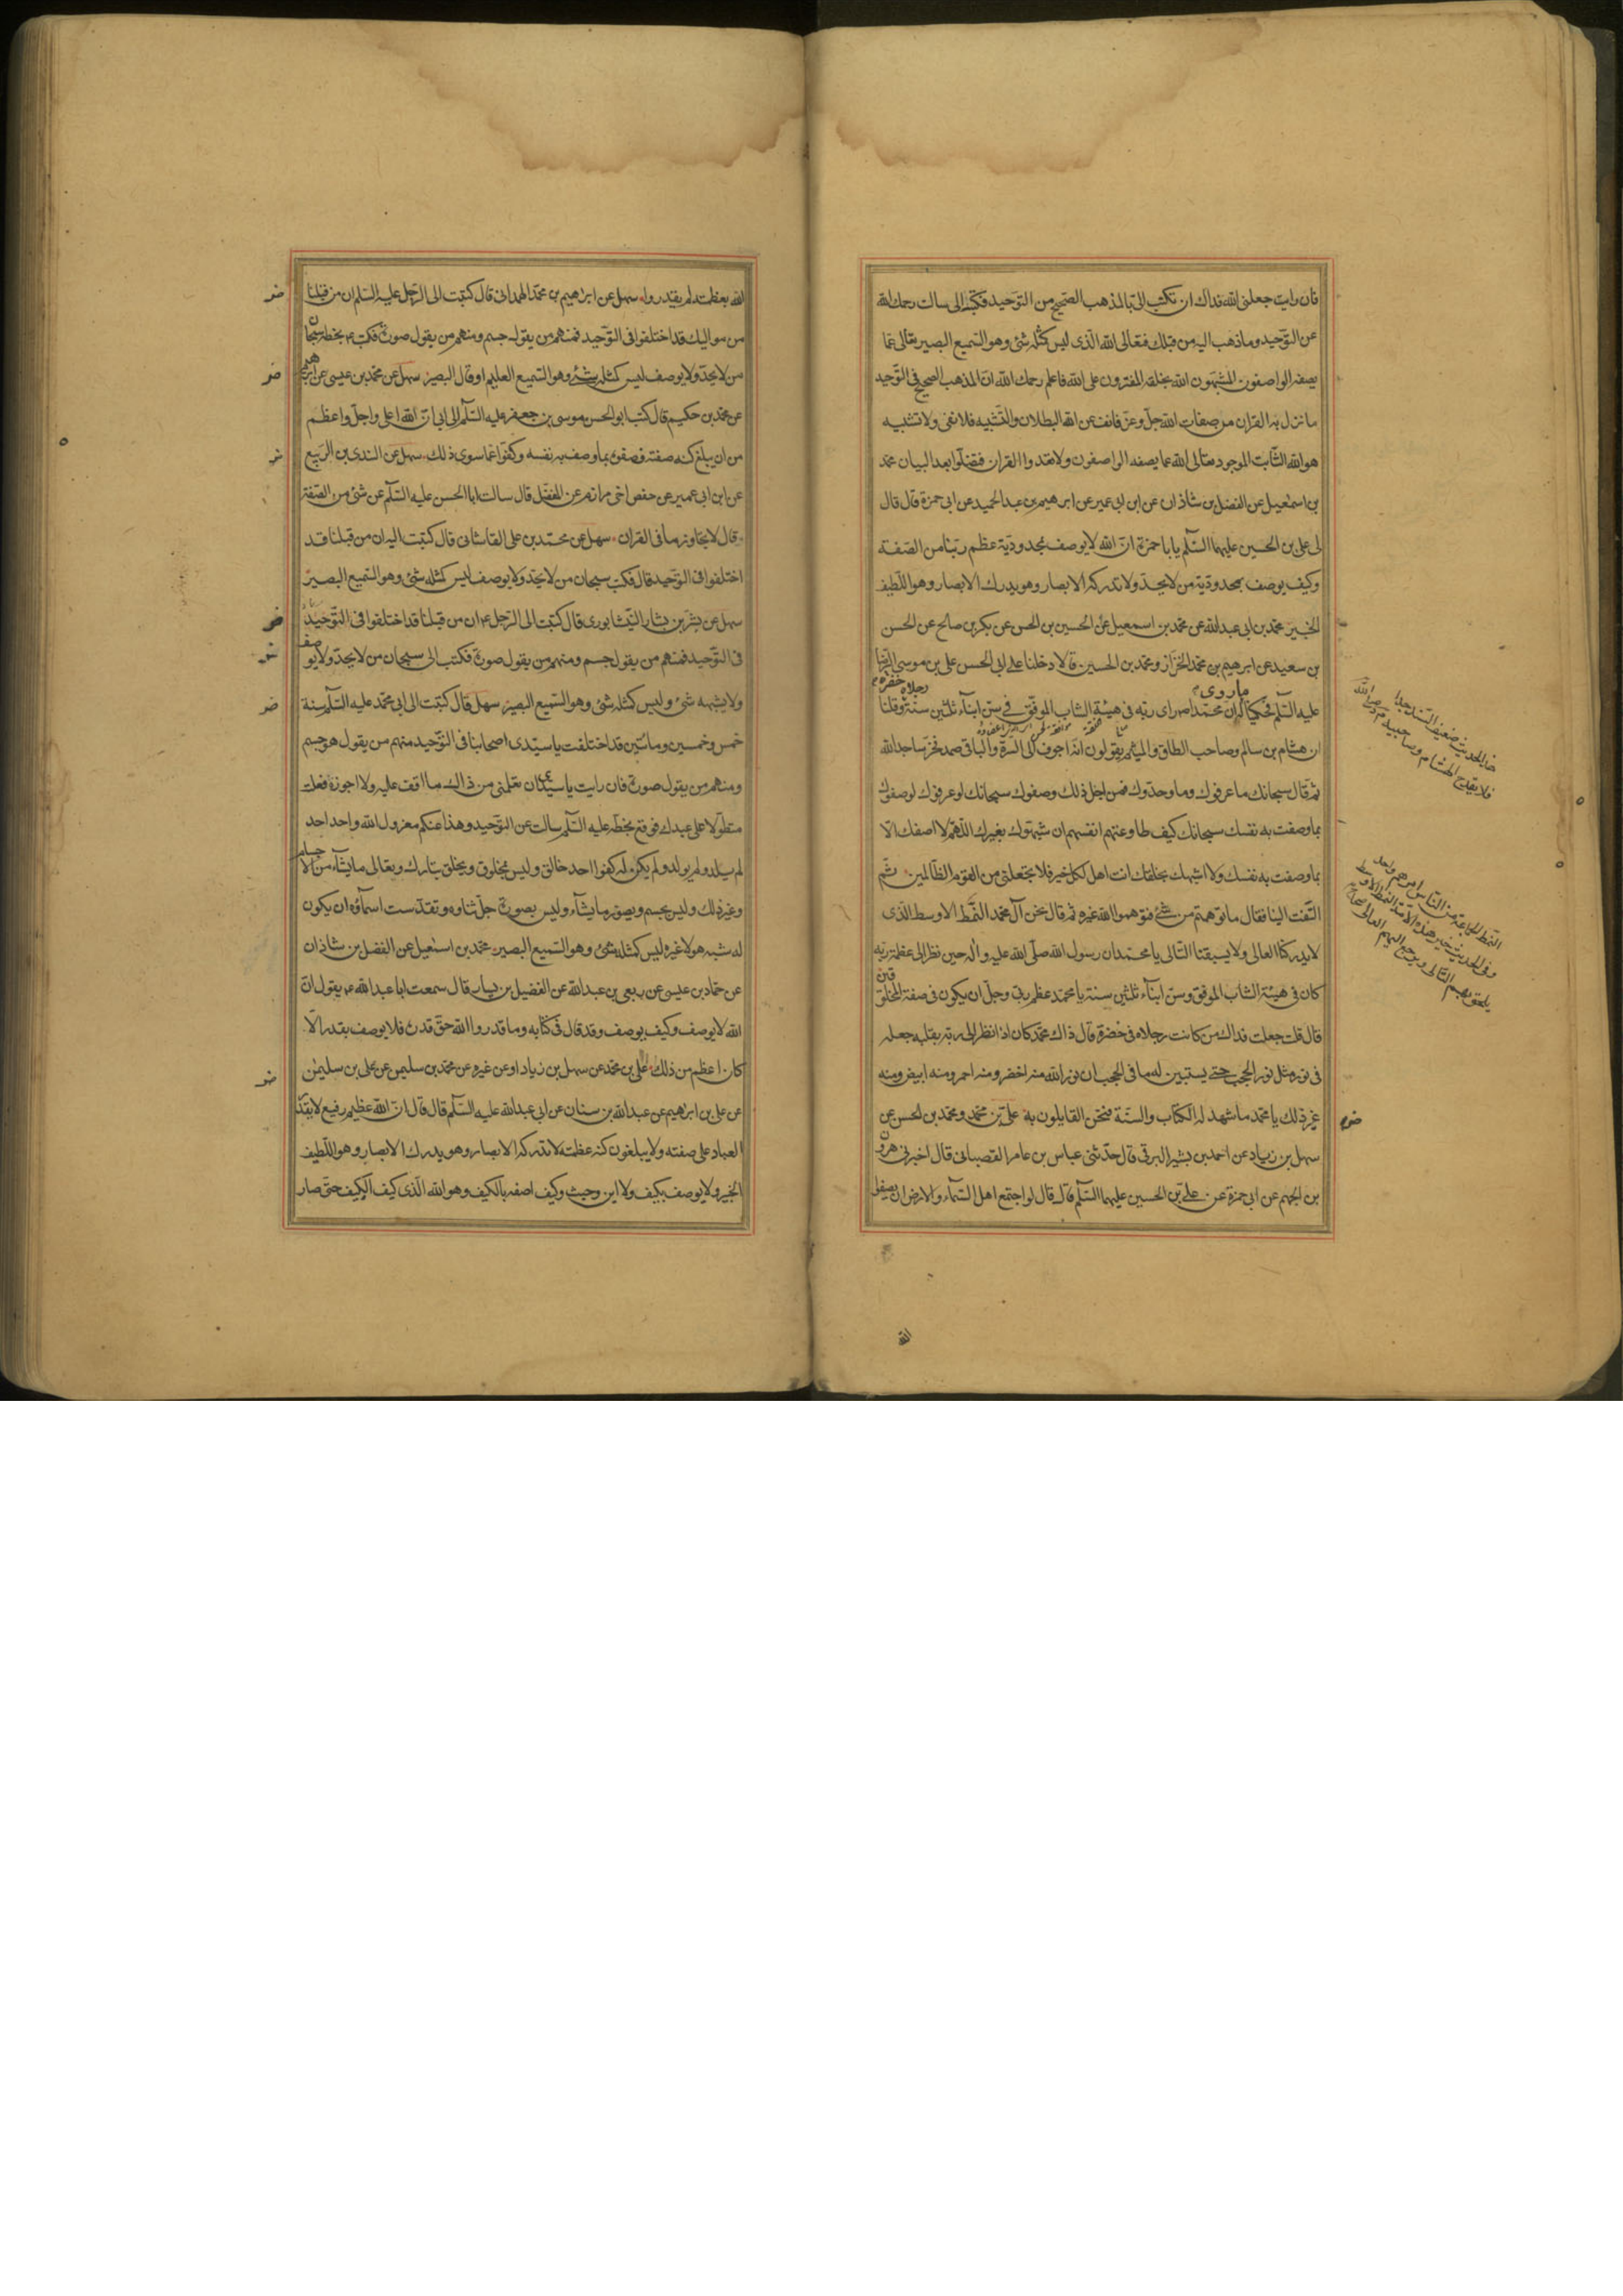 فان رايت جعلنى الله فداك ان تكتب الى بالمذهب الصحيح من التوحيد فكتب الى سالت رحمك الله
عن التوحيد وما ذهب اليه من قبلك فتعالى الله الذى ليس كمثله شئ وهو السميع البصير تعالى عما
يصفه الواصفون المشبهون الله بخلقه المفترون على الله فاعلم رحمك الله ان المذهب الصحيح فى التوحيد
ما نزل به القران من صفات الله جل وعز فانف عن الله البطلان والتشبيه فلا نفى ولا تشبيه
هو الله الثابت الموجود تعالى الله عما يصفه الواصفون ولا تعدوا القران فتضلوا بعد البيان محمد
بن اسمعيل عن الفضل بن شاذان عن ابن ابى عمير عن ابرهيم بن عبد الحميد عن ابى حمزة قال قال
لى على بن الحسين عليهما السلم يا با حمزة ان الله لا يوصف بمحدودية عظم ربنا من الصفة
وكيف يوصف بمحدودية من لا يحد ولا تدركه الابصار وهو يدرك الابصار وهو اللطيف
الخبير محمد بن ابى عبد الله عن محمد بن اسمعيل عن الحسين بن الحسن عن بكر بن صالح عن الحسن
بن سعيد عن ابرهيم بن محمد الخزاز ومحمد بن الحسين قالا دخلنا على ابى الحسن على بن موسى الرضا
عليه السلم فحكينا له ما روى ان محمدا ص راى ربه فى هيئة الشاب الموفق فى سن ابناء ثلثين سنة رجلاه خضرة وقلنا
ان هشام بن سالم وصاحب الطاق والميثمى يقولون انه اجوف الى السرة والباقى صمد فخر ساجدا لله
ثم قال سبحانك ما عرفوك وما وحدوك فمن اجل ذلك وصفوك سبحانك لو عرفوك لوصفوك
بما وصفت به نفسك سبحانك كيف طاوعتهم انفسهم ان شبهوك بغيرك اللهم لا اصفك الا
بما وصفت به نفسك ولا اشبهك بخلقك انت اهل لكل خير فلا تجعلنى من القوم الظالمين ثم
التفت الينا فقال ما توهمتم من شئ فتوهموا الله غيره ثم قال نحن آل محمد النمط الاوسط الذى
لا يدركنا الغالى ولا يسبقنا التالى يا محمد ان رسول الله صلى الله عليه واله حين نظر الى عظمة ربه
كان فى هيئة الشاب الموفق وسن ابناء ثلثين سنة يا محمد عظم ربى وجل ان يكون فى صفة المخلوقين
قال قلت جعلت فداك من كانت رجلاه فى خضرة قال ذاك محمد كان اذا نظر الى ربه بقلبه جعله
فى نور مثل نور الحجب حتى يستبين له ما فى الحجب ان نور الله منه اخضر ومنه احمر ومنه ابيض ومنه
غير ذلك يا محمد ما شهد له الكتاب والسنة فنحن القايلون به على بن محمد ومحمد بن الحسن عن
سهل بن زياد عن احمد بن بشير البرقى قال حدثنى عباس بن عامر القصبانى قال اخبرنى هرون
بن الجهم عن ابى حمزة عن على بن الحسين عليهما السلم قال قال لو اجتمع اهل السماء والارض ان يصفوا
الله
الله بعظمته لم يقدروا سهل عن ابرهيم بن محمد الهمدانى قال كتبت الى الرجل عليه السلم ان من قبلنا
من مواليك قد اختلفوا فى التوحيد فمنهم من يقول جسم ومنهم من يقول صورة فكتب ع بخطه سبحان
من لا يحد ولا يوصف ليس كمثله شئ وهو السميع العليم او قال البصير سهل عن محمد بن عيسى عن ابرهيم
عن محمد بن حكيم قال كتب ابو الحسن موسى بن جعفر عليه السلم الى ابى ان الله اعلى واجل واعظم
من ان يبلغ كنه صفته فصفوه بما وصف به نفسه وكفوا عما سوى ذلك سهل عن السندى بن الربيع
عن ابن ابى عمير عن حفص اخى مرازم عن المفضل قال سالت ابا الحسن عليه السلم عن شئ من الصفة
قال لا تجاوز ما فى القران سهل عن محمد بن على القاسانى قال كتبت اليه ان من قبلنا قد
اختلفوا فى التوحيد قال فكتب سبحان من لا يحد ولا يوصف ليس كمثله شئ وهو السميع البصير
سهل عن بشر بن بشار النيشابورى قال كتبت الى الرجل ع ان من قبلنا قد اختلفوا فى التوحيد
فى التوحيد فمنهم من يقول جسم ومنهم من يقول صورة فكتب الى سبحان من لا يحد ولا يوصف
ولا يشبهه شئ وليس كمثله شئ وهو السميع البصير سهل قال كتبت الى ابى محمد عليه السلم سنة
خمس وخمسين ومائتين قد اختلفت يا سيدى اصحابنا فى التوحيد منهم من يقول هو جسم
ومنهم من يقول صورة فان رايت يا سيدى ان تعلمنى من ذلك ما اقف عليه ولا اجوزه فعلت
متطولا على عبدك فوقع بخطه عليه السلم سالت عن التوحيد وهذا عنكم معزول الله واحد احد
لم يلد ولم يولد ولم يكن له كفوا احد خالق وليس بمخلوق ويخلق تبارك وتعالى ما يشاء من الاجسام
وغير ذلك وليس بجسم ويصور ما يشاء وليس بصورة جل ثناوه وتقدست اسماؤه ان يكون
له شبه هو لا غيره ليس كمثله شئ وهو السميع البصير محمد بن اسمعيل عن الفضل بن شاذان
عن حماد بن عيسى عن ربعى بن عبد الله عن الفضيل بن يسار قال سمعت ابا عبد الله ع يقول ان
الله لا يوصف وكيف يوصف وقد قال فى كتابه وما قدروا الله حق قدره فلا يوصف بقدر الا
كان اعظم من ذلك على بن محمد عن سهل بن زياد او عن غيره عن محمد بن سليمن عن على بن سليمن
عن على بن ابرهيم عن عبد الله بن سنان عن ابى عبد الله عليه السلم قال قال ان الله عظيم رفيع لا يقدر
العباد على صفته ولا يبلغون كنه عظمته لا تدركه الابصار وهو يدرك الابصار وهو اللطيف
الخبير ولا يوصف بكيف ولا اين وحيث وكيف اصفه بالكيف وهو الله الذى كيف الكيف حتى صار